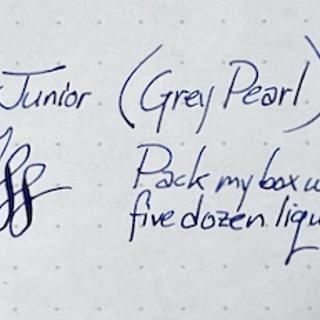 Junior (Grey Pearl)
Pack my box w
five dozen liqu